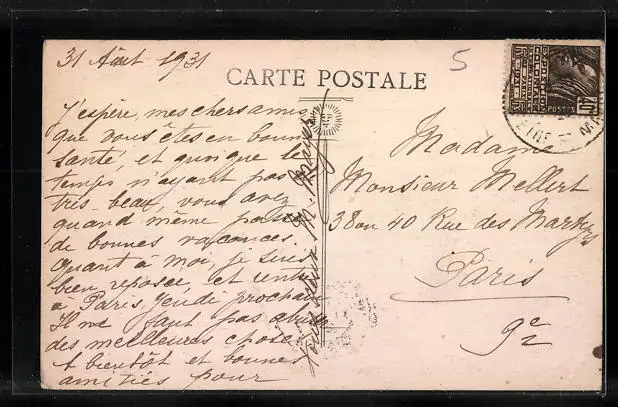 31 Août 1931
CARTE POSTALE
5
J'espère, mes chers amis,
que vous êtes en bonne
santé, et quoique le
temps n'ayant pas
très beau, vous avez
quand même passé
de bonnes vacances.
Quant à moi, je suis
bien reposée, et rentre
à Paris, Jeudi prochain
Il ne faut pas abuser
des meilleures choses
A bientôt et bonnes
amitiés pour
tous deux M.
Madame
Monsieur Mellert
38 ou 40 Rue des Martyrs
Paris
9e
POSTES